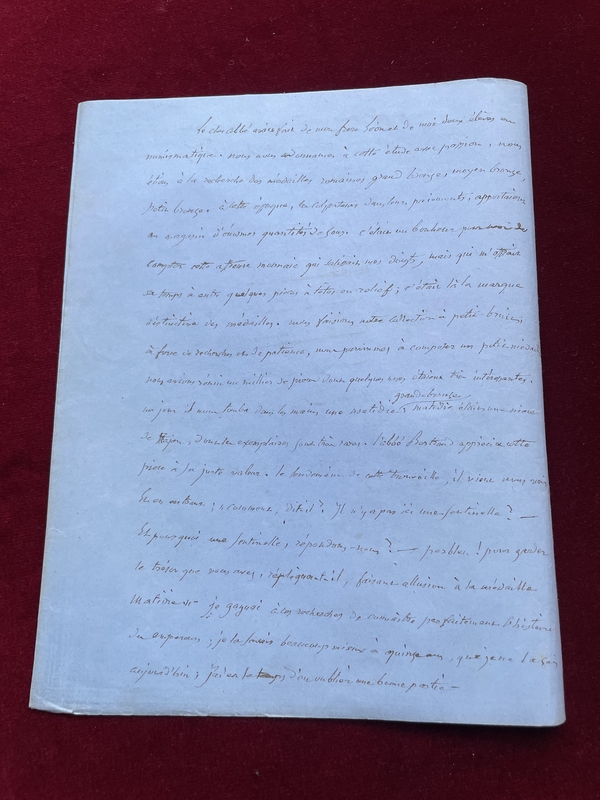 le cher abbé avait fait de mon frère Léon et de moi deux élèves en
numismatique. nous nous adonnames à cette étude avec passion, nous
étions à la recherche des médailles romaines grand bronze, moyen bronze,
petit bronze. à cette époque, les dans leurs paiements, apportaient
au magasin d'énormes quantités de sous. c'était un bonheur pour moi de
compter cette affreuse monnaie qui mes doigts, mais qui m'offrait
de temps à autre quelques pièces à têtes en relief; c'était là la marque
distinctive des médailles. nous faisions notre collection à petit bruit
à force de recherches et de patience, nous parvinmes à composer un petit
nous avions réuni un millier de pièces dont quelques unes étaient très intéressantes.
un jour il nous tomba dans les mains une matidie, grand bronze matidie était une nièce
de Trajan, dont les exemplaires sont très rares. l'abbé Bertrand apprécia cette
pièce à sa juste valeur. le lendemain de cette trouvaille, il vient nous voir
Et en entrant; "comment, dit-il? Il n'y a pas ici une sentinelle? —
Et pourquoi une sentinelle, répondimes-nous? — parbleu! pour garder
le trésor que vous avez, répliquait-il, faisant allusion à la médaille
Matidie — je gagnai à ces recherches de connaître parfaitement l'histoire
des empereurs; je la savais beaucoup mieux à quinze ans, que je ne la sais
aujourd'hui; j'ai eu le temps d'en oublier une bonne partie —